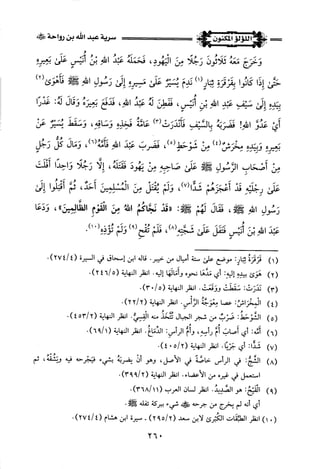 اللؤلؤ المكنون
سرية عبد الله بن رواحة ﷺ
وَخَرَجَ مَعَهُ ثَلَاثُونَ رَجُلًا مِنَ الْيَهُودِ، فَحَمَلَهُ عَبْدُ اللهِ بنُ أُنَيْسٍ عَلَىٰ بَعِيرِهِ
حَتَّى إِذَا كَانُوا بِقَرْقَرَةِ ثِبَارٍ(١) نَدِمَ يُسَيْرٌ عَلَىٰ مَسِيرِهِ إِلَىٰ رَسُولِ اللهِ ﷺ فَأَهْوَىٰ(٢)
بِيَدِهِ إِلَىٰ سَيْفِ عَبْدِ اللهِ بنِ أُنَيْسٍ، فَفَطِنَ لَهُ عَبْدُ اللهِ، فَدَفَعَ بَعِيرَهُ وَقَالَ لَهُ: غَدْرًا
أَيْ عَدُوَّ اللهِ! فَضَرَبَهُ بِالسَّيْفِ فَأَنْدَرَتْ(٣) عَامَّةُ فَخِذِهِ وَسَاقِهِ، وَسَقَطَ يُسَيْرٌ عَنْ
بَعِيرِهِ وَبِيَدِهِ مِخْرَشٌ(٤) مِنْ شَوْحَطٍ(٥)، فَضَرَبَ عَبْدَ اللهِ فَأَمَّهُ(٦)، وَمَالَ كُلُّ رَجُلٍ
مِنْ أَصْحَابِ الرَّسُولِ ﷺ عَلَىٰ صَاحِبِهِ مِنْ يَهُودَ فَقَتَلَهُ، إِلَّا رَجُلًا وَاحِدًا أَفْلَتَ
عَلَىٰ رِجْلَيْهِ قَدْ أَعْجَزَهُمْ شَدًّا(٧)، وَلَمْ يُقْتَلْ مِنَ الْمُسْلِمِينَ أَحَدٌ، ثُمَّ أَقْبَلُوا إِلَىٰ
رَسُولِ اللهِ ﷺ، فَقَالَ لَهُمْ ﷺ: «قَدْ نَجَّاكُمُ اللهُ مِنَ الْقَوْمِ الظَّالِمِينَ»، وَدَعَا
عَبْدَ اللهِ بنَ أُنَيْسٍ فَتَفَلَ عَلَىٰ شَجَّتِهِ(٨)، فَلَمْ تُقِحْ(٩) وَلَمْ تُؤْذِهِ(١٠).
(١) قَرْقَرَةُ ثِبَارٍ: موضع على ستة أميال من خيبر. قاله ابن إسحاق في السيرة (٢٧٤/٤).
(٢) هَوَىٰ بيدِهِ إليه: أي مَدَّهَا نحوه وأمَالَهَا إليه. انظر النهاية (٢٤٦/٥).
(٣) نَدَرَتْ: سَقَطَتْ ووَقَعَتْ. انظر النهاية (٣٠/٥).
(٤) الْمِخْرَاشُ: عصا مِعْوَجَّةُ الرَّأسِ. انظر النهاية (٢٢/٢).
(٥) الشَّوْحَطُ: ضَرْبٌ من شجر الجبال تُتَّخَذُ منه القِسِيُّ. انظر النهاية (٤٥٣/٢).
(٦) أَمَّهُ: أي أصابَ أُمَّ رأسِهِ، وأُمُّ الرأسِ: الدِّمَاغُ. انظر النهاية (٦٩/١).
(٧) شَدًّا: أي جَرْيًا. انظر النهاية (٤٠٥/٢).
(٨) الشَّجُّ: في الرأسِ خاصَّةً في الأصل، وهو أنْ يضرِبَهُ بشيءٍ فيَجْرَحه فيه ويشُقّه، ثم
استعمل في غيره من الأعضاء. انظر النهاية (٣٩٩/٢).
(٩) الْقَيْحُ: هو الصديدُ. انظر لسان العرب (٣٦٨/١١).
أي أنه لم يخرج من جرحه ﷺ شيء ببركة تفله ﷺ.
(١٠) انظر الطَّبَقَات الكُبْرىٰ لابن سعد (٢٩٥/٢)، سيرة ابن هشام (٢٧٤/٤).
٢٦٠